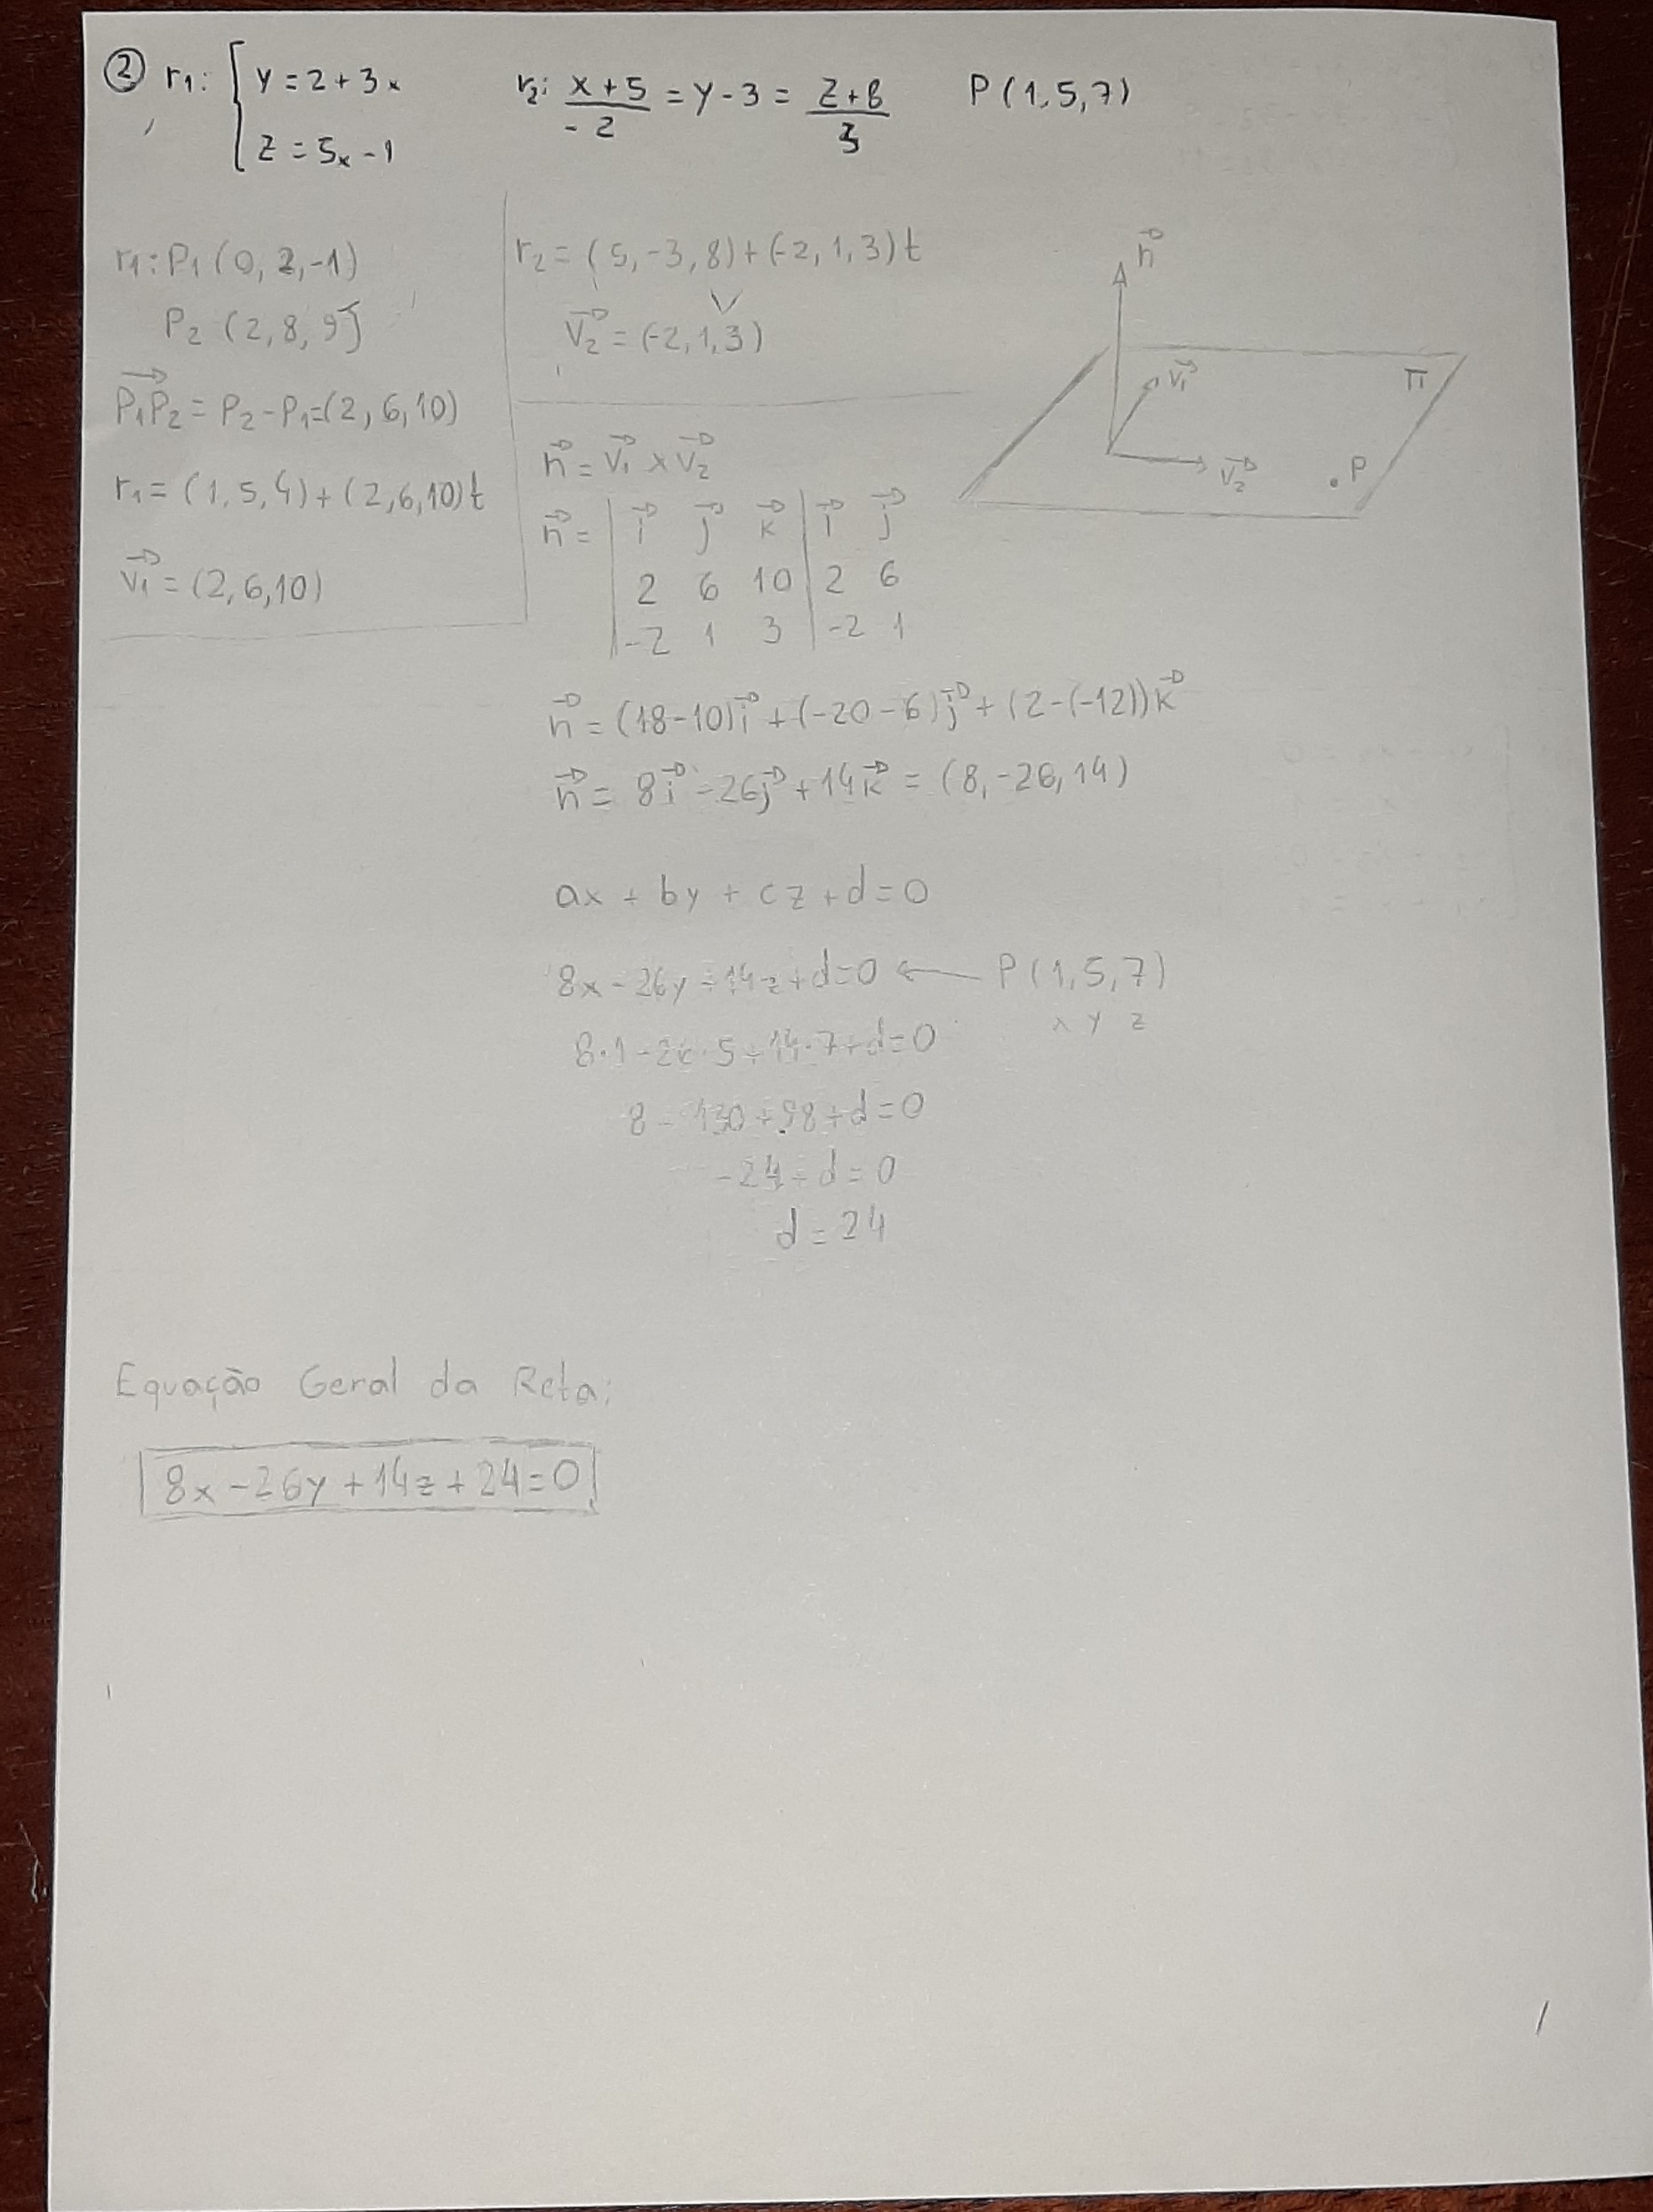 ② r₁: { y = 2 + 3x
z = 5x - 1
r₂: x + 5 / -2 = y - 3 = z + 8 / 3
P (1, 5, 7)
r₁: P₁ (0, 2, -1)
P₂ (2, 8, 9)
P₁P₂ = P₂ - P₁ = (2, 6, 10)
r₁ = (1, 5, 4) + (2, 6, 10)t
v₁ = (2, 6, 10)
r₂ = (5, -3, 8) + (-2, 1, 3)t
v₂ = (-2, 1, 3)
n
v₁
π
v₂
P
n = v₁ x v₂
n = | i j k | i j
2 6 10 | 2 6
-2 1 3 | -2 1
n = (18 - 10)i + (-20 - 6)j + (2 - (-12))k
n = 8i - 26j + 14k = (8, -26, 14)
ax + by + cz + d = 0
8x - 26y + 14z + d = 0 ← P (1, 5, 7)
x y z
8·1 - 26·5 + 14·7 + d = 0
8 - 130 + 98 + d = 0
-24 + d = 0
d = 24
Equação Geral da Reta:
8x - 26y + 14z + 24 = 0